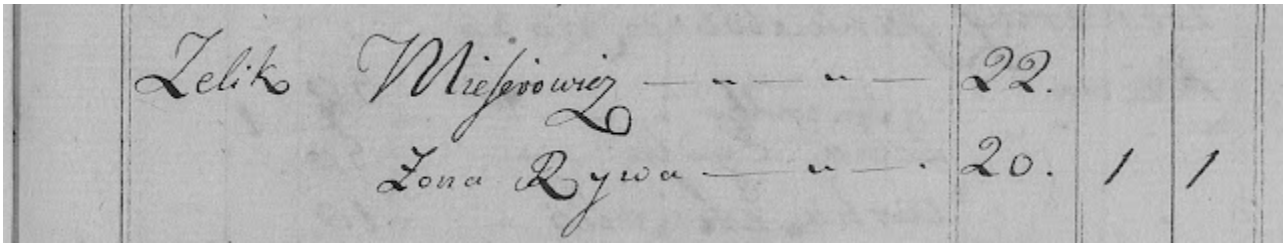 Zelik Mieserowicz — „ — „ — 22.
Zona Rywa — „ — . 20. 1 1